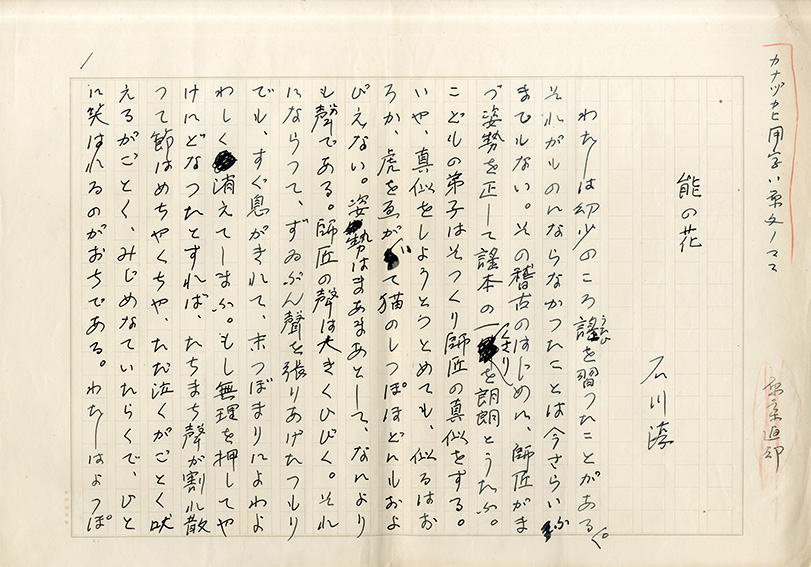 カナヅカヒ用字ハ原文ノママ
原稿返却
能の花
石川淳
わたしは幼少のころ謡を習つたことがある。
それがものにならなかつたことは今さらいふ
までもない。その稽古のはじめに、師匠がま
づ姿勢を正して謡本の一くさりを朗朗とうたふ。
こどもの弟子はそつくり師匠の真似をする。
いや、真似をしようとつとめても、似るはお
ろか、虎を画がいて猫のしつぽほどにもおよ
びえない。姿勢はまあまあとして、なにより
も聲である。師匠の聲は大きくひびく。それ
にならつて、ずゐぶん聲を張りあげたつもり
でも、すぐ息がきれて、末つぼまりによわよ
わしく消えてしまふ。もし無理を押してや
けにどなつたとすれば、たちまち聲が割れ散
つて節はめちやくちや、ただ泣くがごとく吠
えるがごとく、みじめなていたらくで、ひと
に笑はれるのがおちである。わたしはよつぽ
1